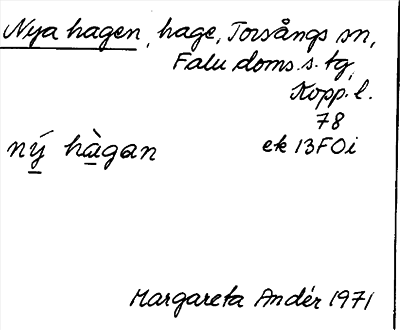 Nya hagen, hage, Torsångs sn,
Falu doms.s. tg,
Kopp. l.
78
ek 13F0i
ný hàgan
Margareta Andér 1971